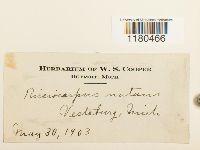 University of Michigan Herbarium
1180466
HERBARIUM OF W. S. COOPER
DETROIT, MICH.
Ricciocarpus natans
Vestaburg, Mich
May 30, 1903